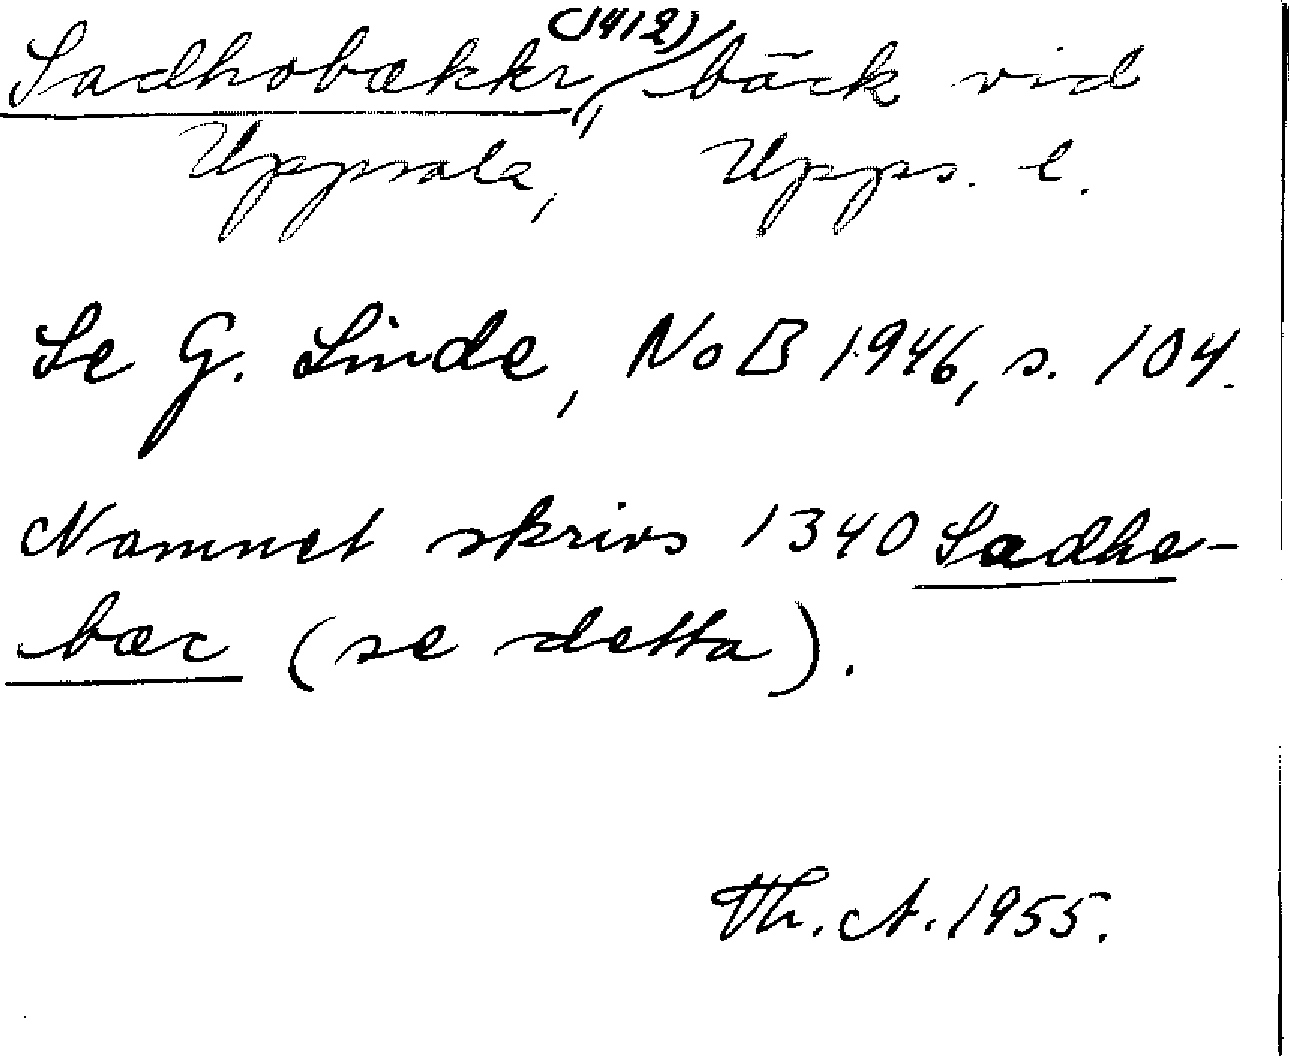 Sadhobækkr (1412), bäck vid
Uppsala, Upps. l.
Se G. Linde, NoB 1946, s. 104.
Namnet skrivs 1340 Sadhe-
bæc (se detta).
Th. A. 1955.